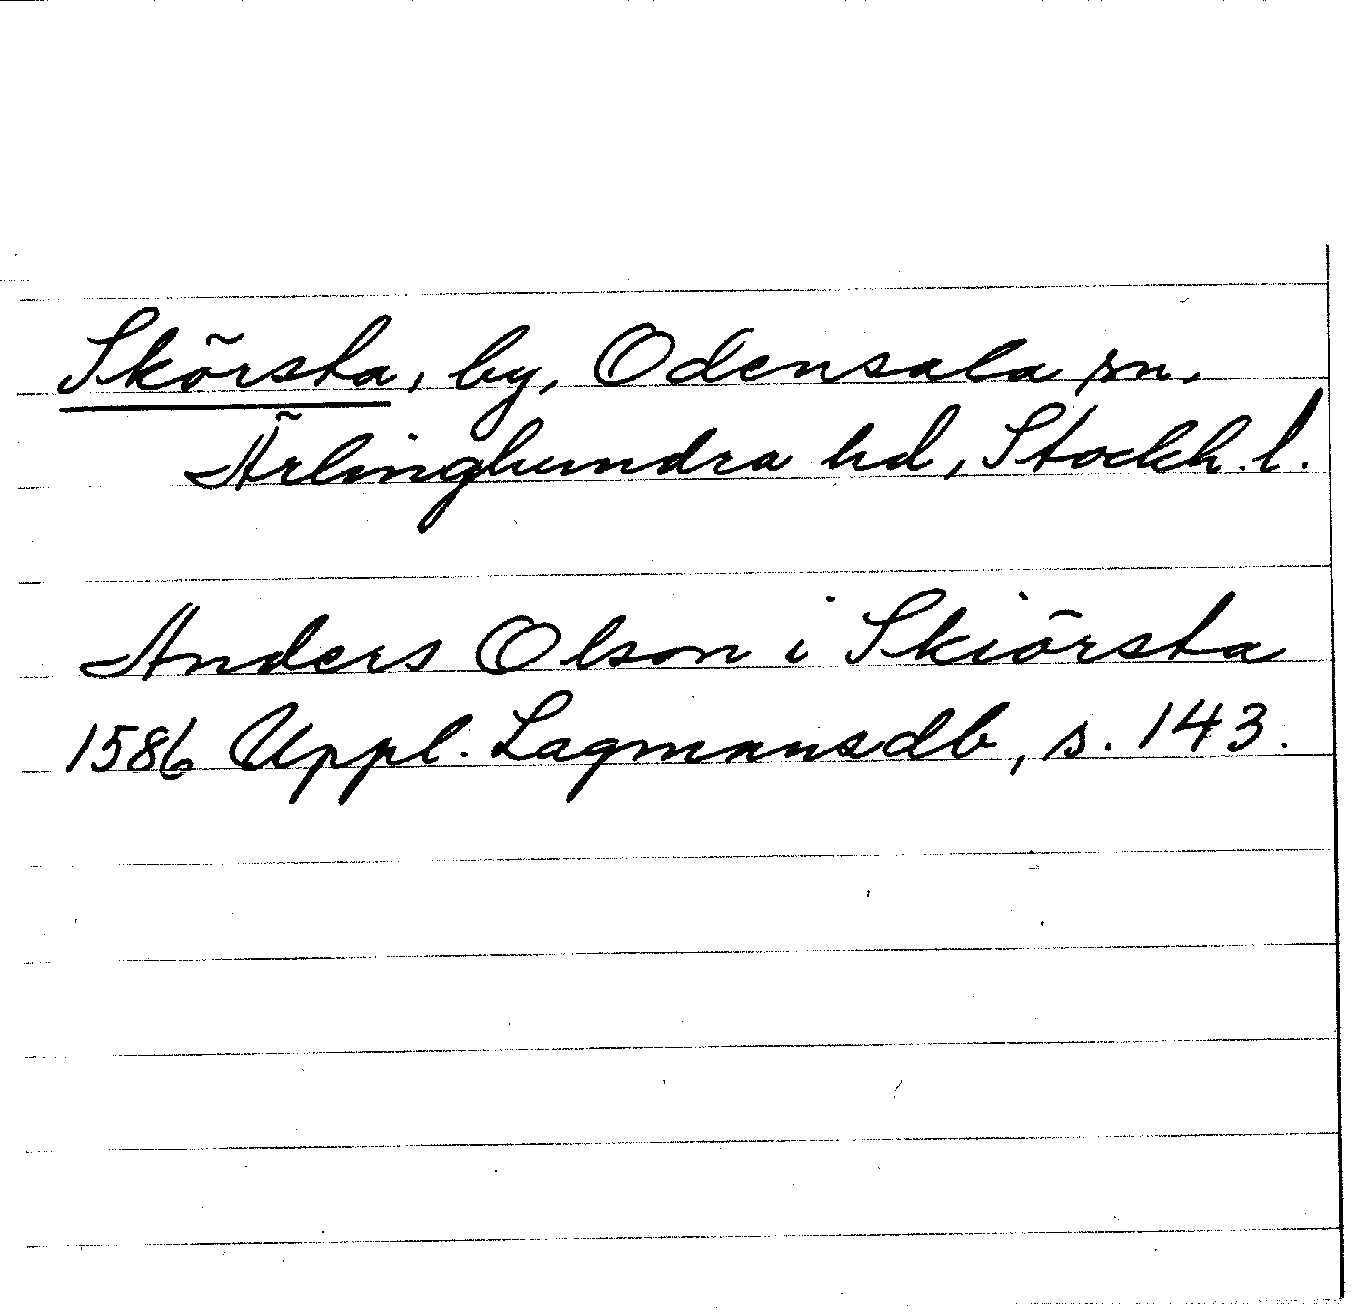 Skörsta, by, Odensala sn,
Ärlinghundra hd, Stockh. l.
Anders Olson i Skiörsta
1586 Uppl. Lagmansdb, s. 143.